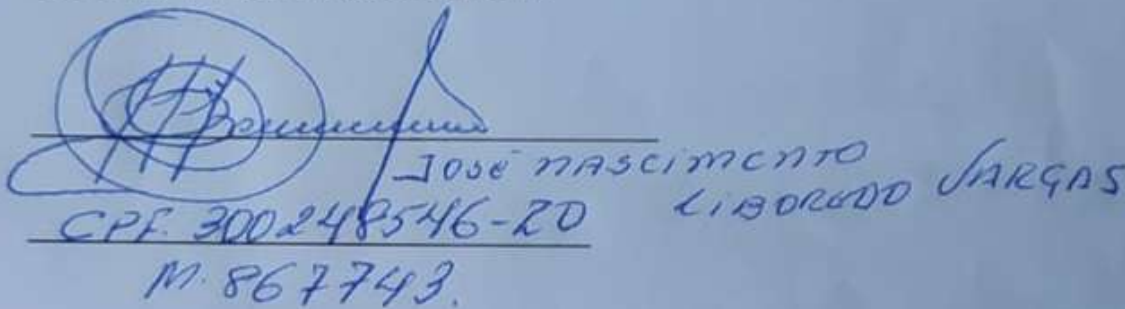 JOSÉ NASCIMENTO
LIBOREDO VARGAS
CPF. 300248546-20
M. 867743.